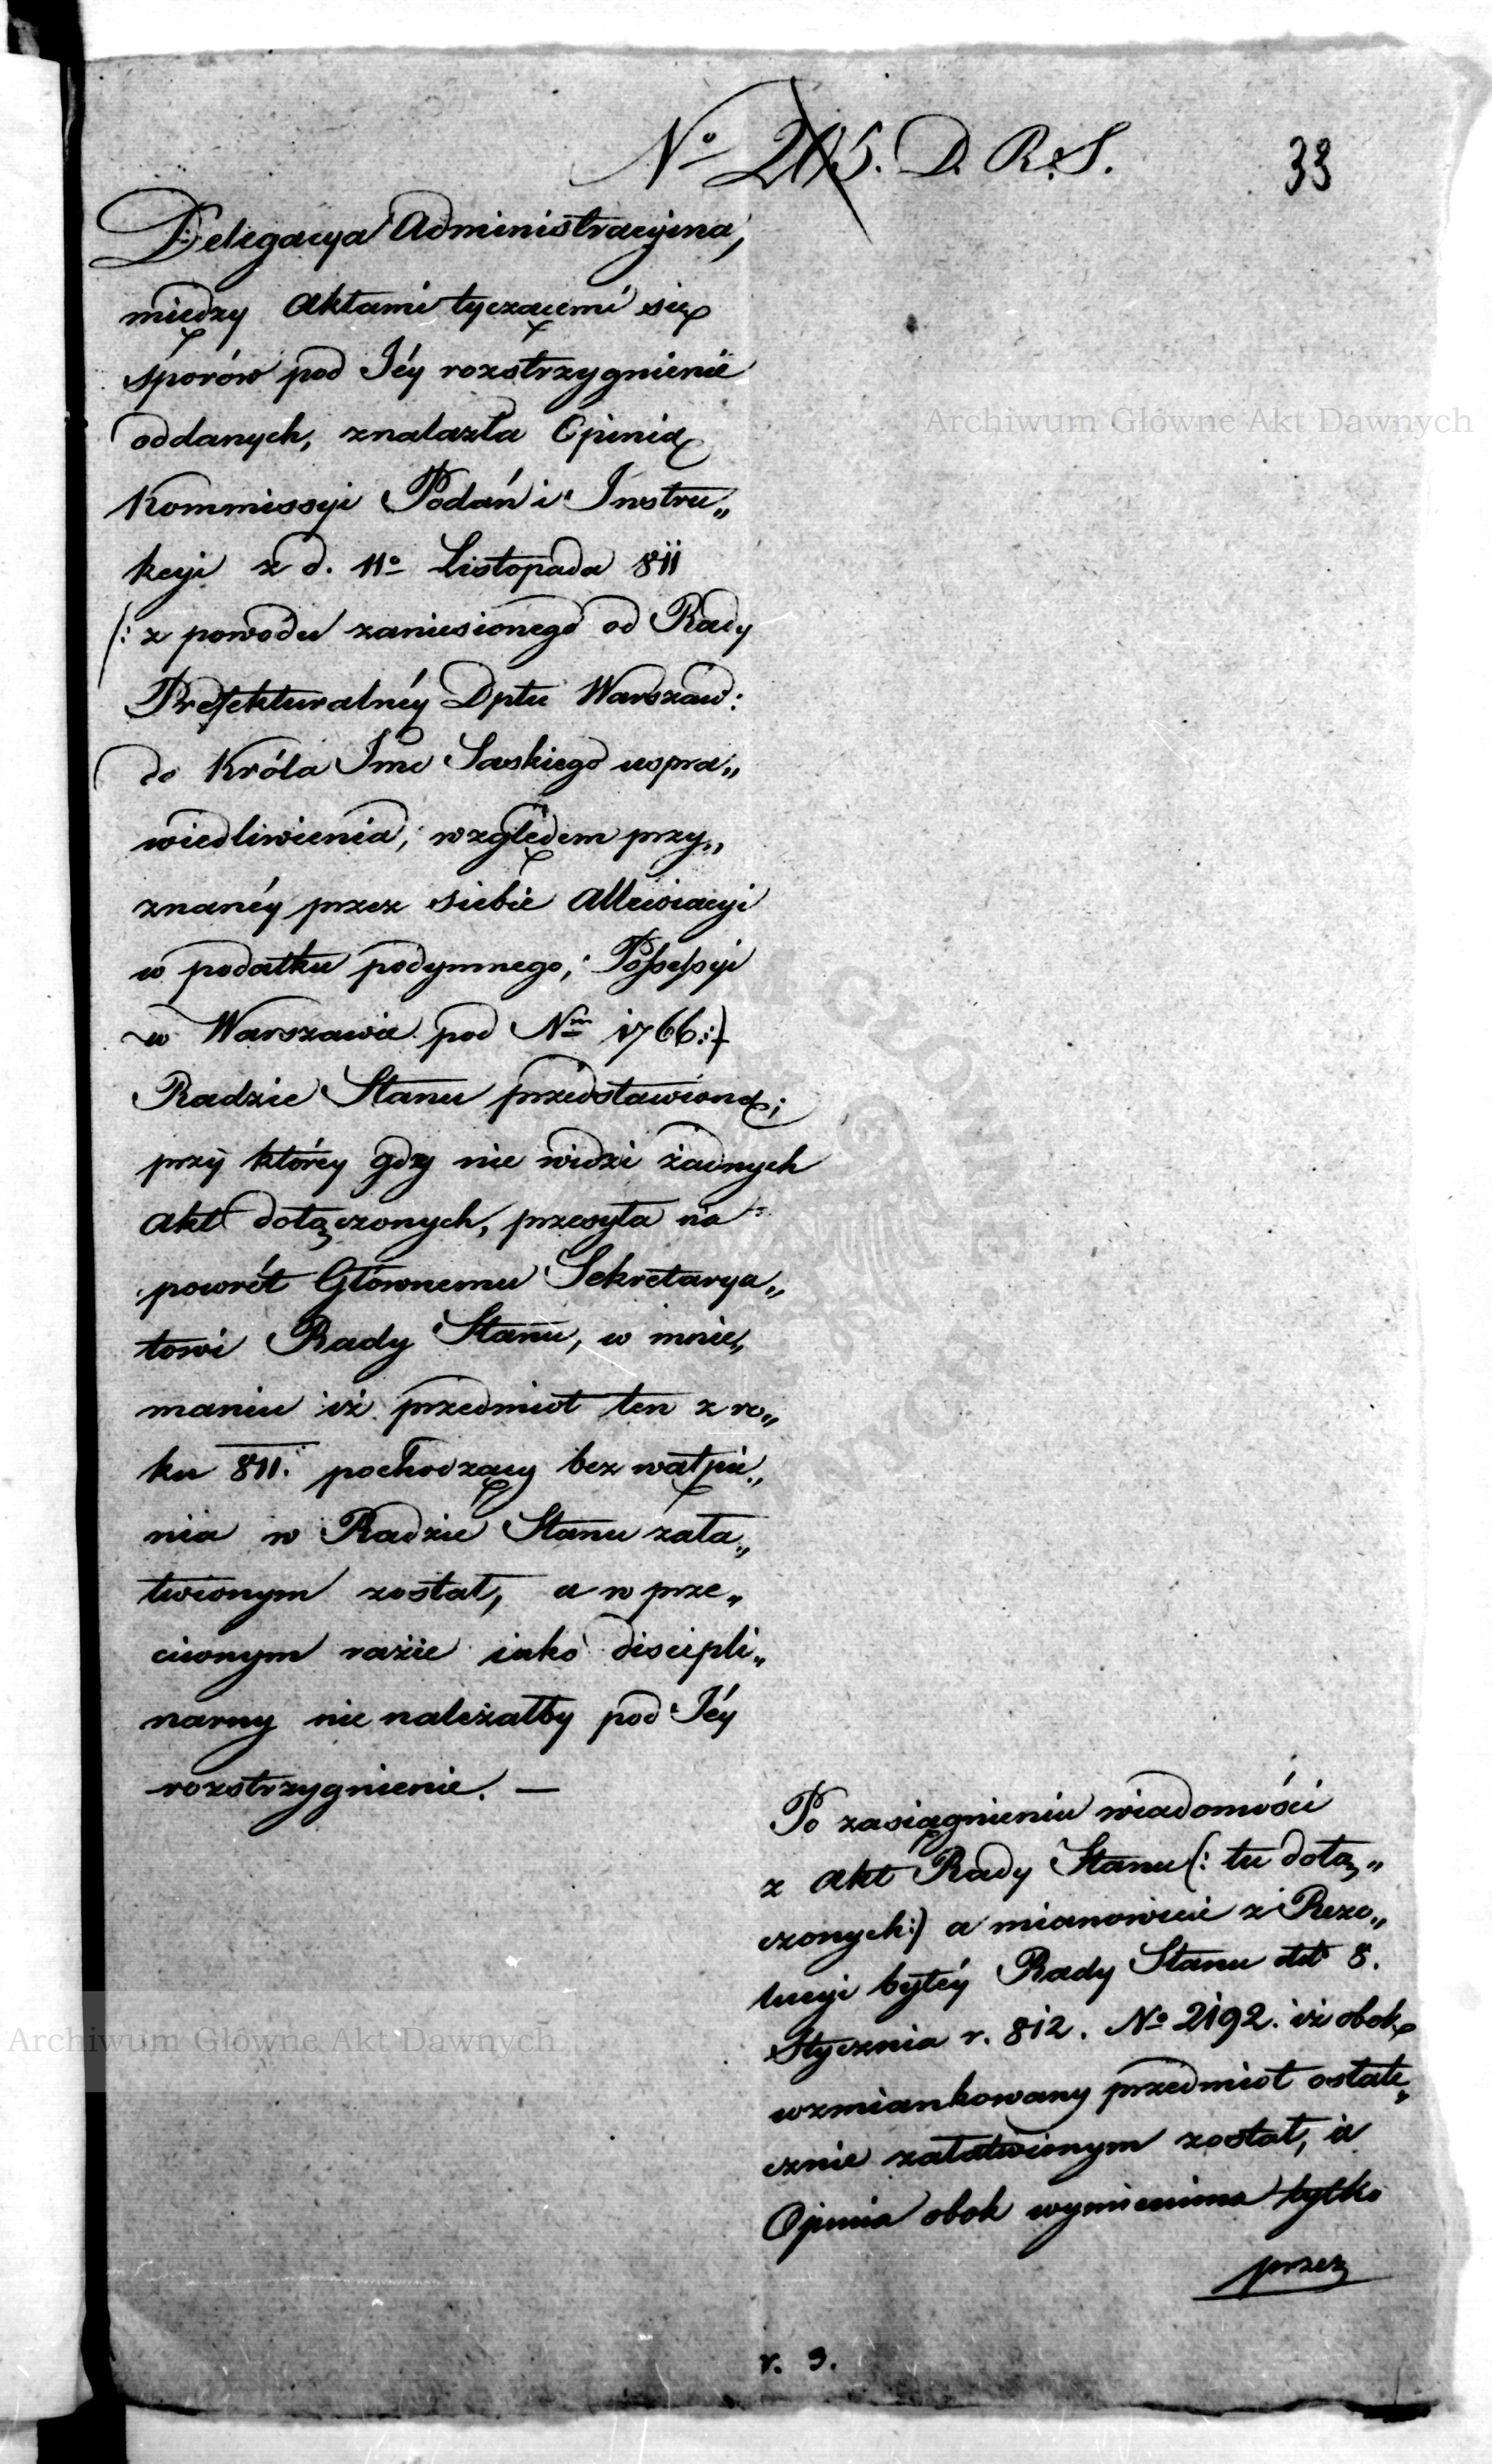 No 205. D. R. S.
33
Delegacya Administracyina,
między Aktami tyczącemi się
sporów pod Jéy rozstrzygnienie
oddanych, znalazła Opinią
Kommissyi Podań i Instru„
kcyi z d. 11o Listopada 811
(: z powodu zaniesionego od Rady
Prefekturalnéy Dptu Warszaw:
do Króla Jmc Saskiego uspra„
wiedliwienia, względem przy„
znanéy przez siebie Allewiacyi
w podatku podymnego, Possessyi
w Warszawie pod Nm 1766:)
Radzie Stanu przedstawioną;
przy któréy gdy nie widzi żadnych
akt dołączonych, przesyła na
powrót Głównemu Sekretarya„
towi Rady Stanu, w mnie„
maniu iż przedmiot ten z ro„
ku 811. pochodzący bez wątpie„
nia w Radzie Stanu zała„
twionym został, a w prze„
ciwnym razie iako discipli„
narny nie należałby pod Jéy
rozstrzygnienie. —
Po zasiągnieniu wiadomości
z Akt Rady Stanu (: tu dołą„
czonych:) a mianowicie z Rezo„
lucyi byłéy Rady Stanu dtt 8.
Stycznia r. 812. No 2192. iż obok
wzmiankowany przedmiot ostate„
cznie załatwionym został, a
Opinia obok wymieniona tylko
przez
r. 9.
Archiwum Główne Akt Dawnych
Archiwum Główne Akt Dawnych